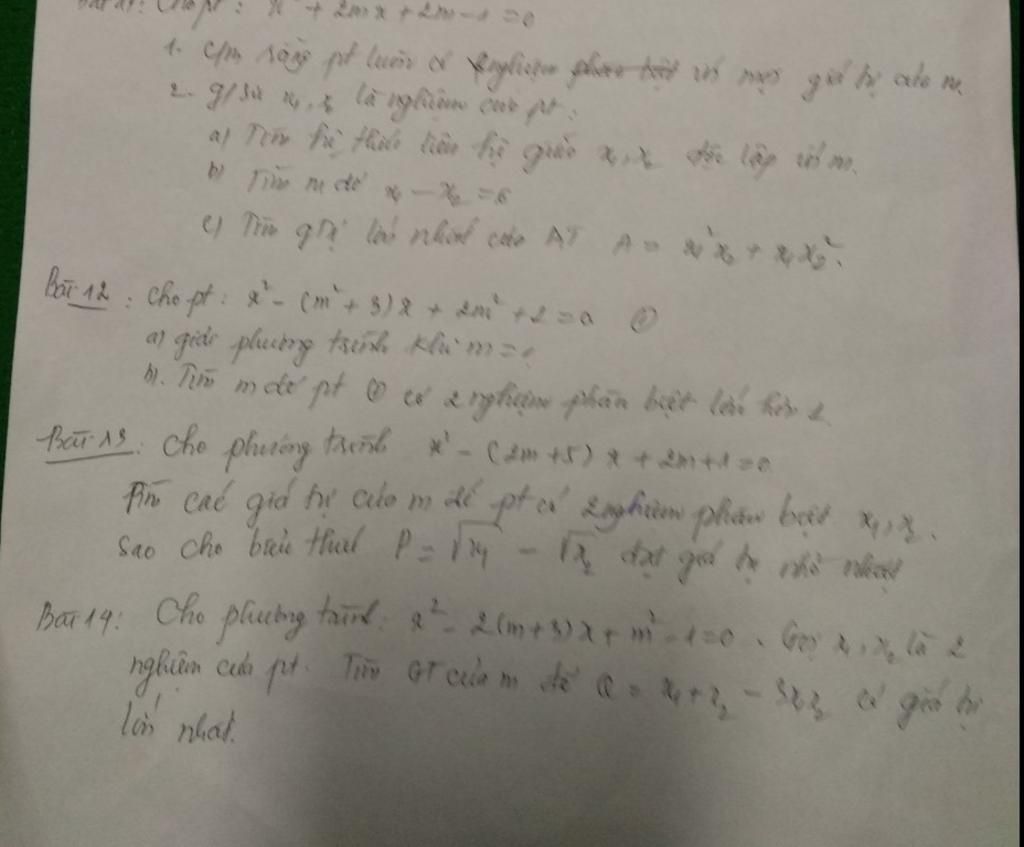 Bài 11: Cho pt: x² + 2mx + 2m - 1 = 0
1. C/m rằng pt luôn có 2 nghiệm với mọi giá trị của m.
2. G/sử x₁, x₂ là nghiệm của pt:
a) Tìm hệ thức liên hệ giữa x₁, x₂ độc lập với m.
b) Tìm m để x₁ - x₂ = 6
c) Tìm gtrị lớn nhất của BT A = x₁²x₂ + x₁x₂².
Bài 12: Cho pt: x² - (m² + 3)x + 2m² + 2 = 0 (1)
a) giải phương trình khi m =
b). Tìm m để pt (1) có 2 nghiệm phân biệt lớn hơn 1.
Bài 13: Cho phương trình x² - (2m+5)x + 2m+1 = 0
Tìm các giá trị của m để pt có 2 nghiệm phân biệt x₁, x₂.
sao cho biểu thức P = |√x₁ - √x₂| đạt giá trị nhỏ nhất
Bài 14: Cho phương trình: x² - 2(m+3)x + m² - 1 = 0. Gọi x₁, x₂ là 2
nghiệm của pt. Tìm GT của m để Q = x₁ + x₂ - 3x₁x₂ có giá trị
lớn nhất.